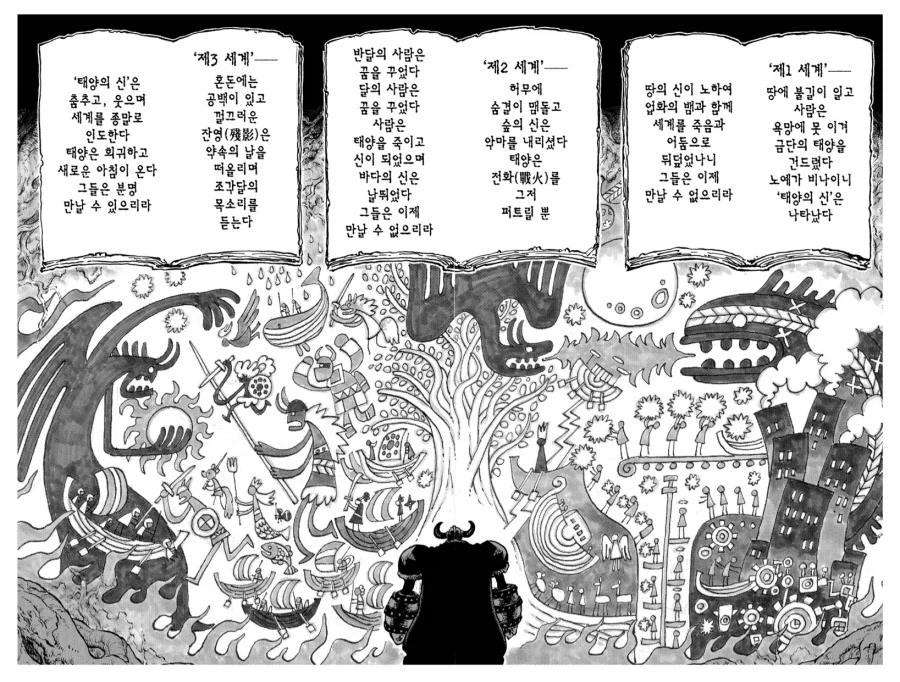 ‘제1 세계’──
땅에 불길이 일고
사람은
욕망에 못 이겨
금단의 태양을
건드렸다
노예가 비나이니
‘태양의 신’은
나타났다
땅의 신이 노하여
업화의 뱀과 함께
세계를 죽음과
어둠으로
뒤덮었나니
그들은 이제
만날 수 없으리라
‘제2 세계’──
허무에
숨결이 맴돌고
숲의 신은
악마를 내리셨다
태양은
전화(戰火)를
그저
퍼트릴 뿐
반달의 사람은
꿈을 꾸었다
달의 사람은
꿈을 꾸었다
사람은
태양을 죽이고
신이 되었으며
바다의 신은
날뛰었다
그들은 이제
만날 수 없으리라
‘제3 세계’──
혼돈에는
공백이 있고
껄끄러운
잔영(殘影)은
약속의 날을
떠올리며
조각달의
목소리를
듣는다
‘태양의 신’은
춤추고, 웃으며
세계를 종말로
인도한다
태양은 회귀하고
새로운 아침이 온다
그들은 분명
만날 수 있으리라